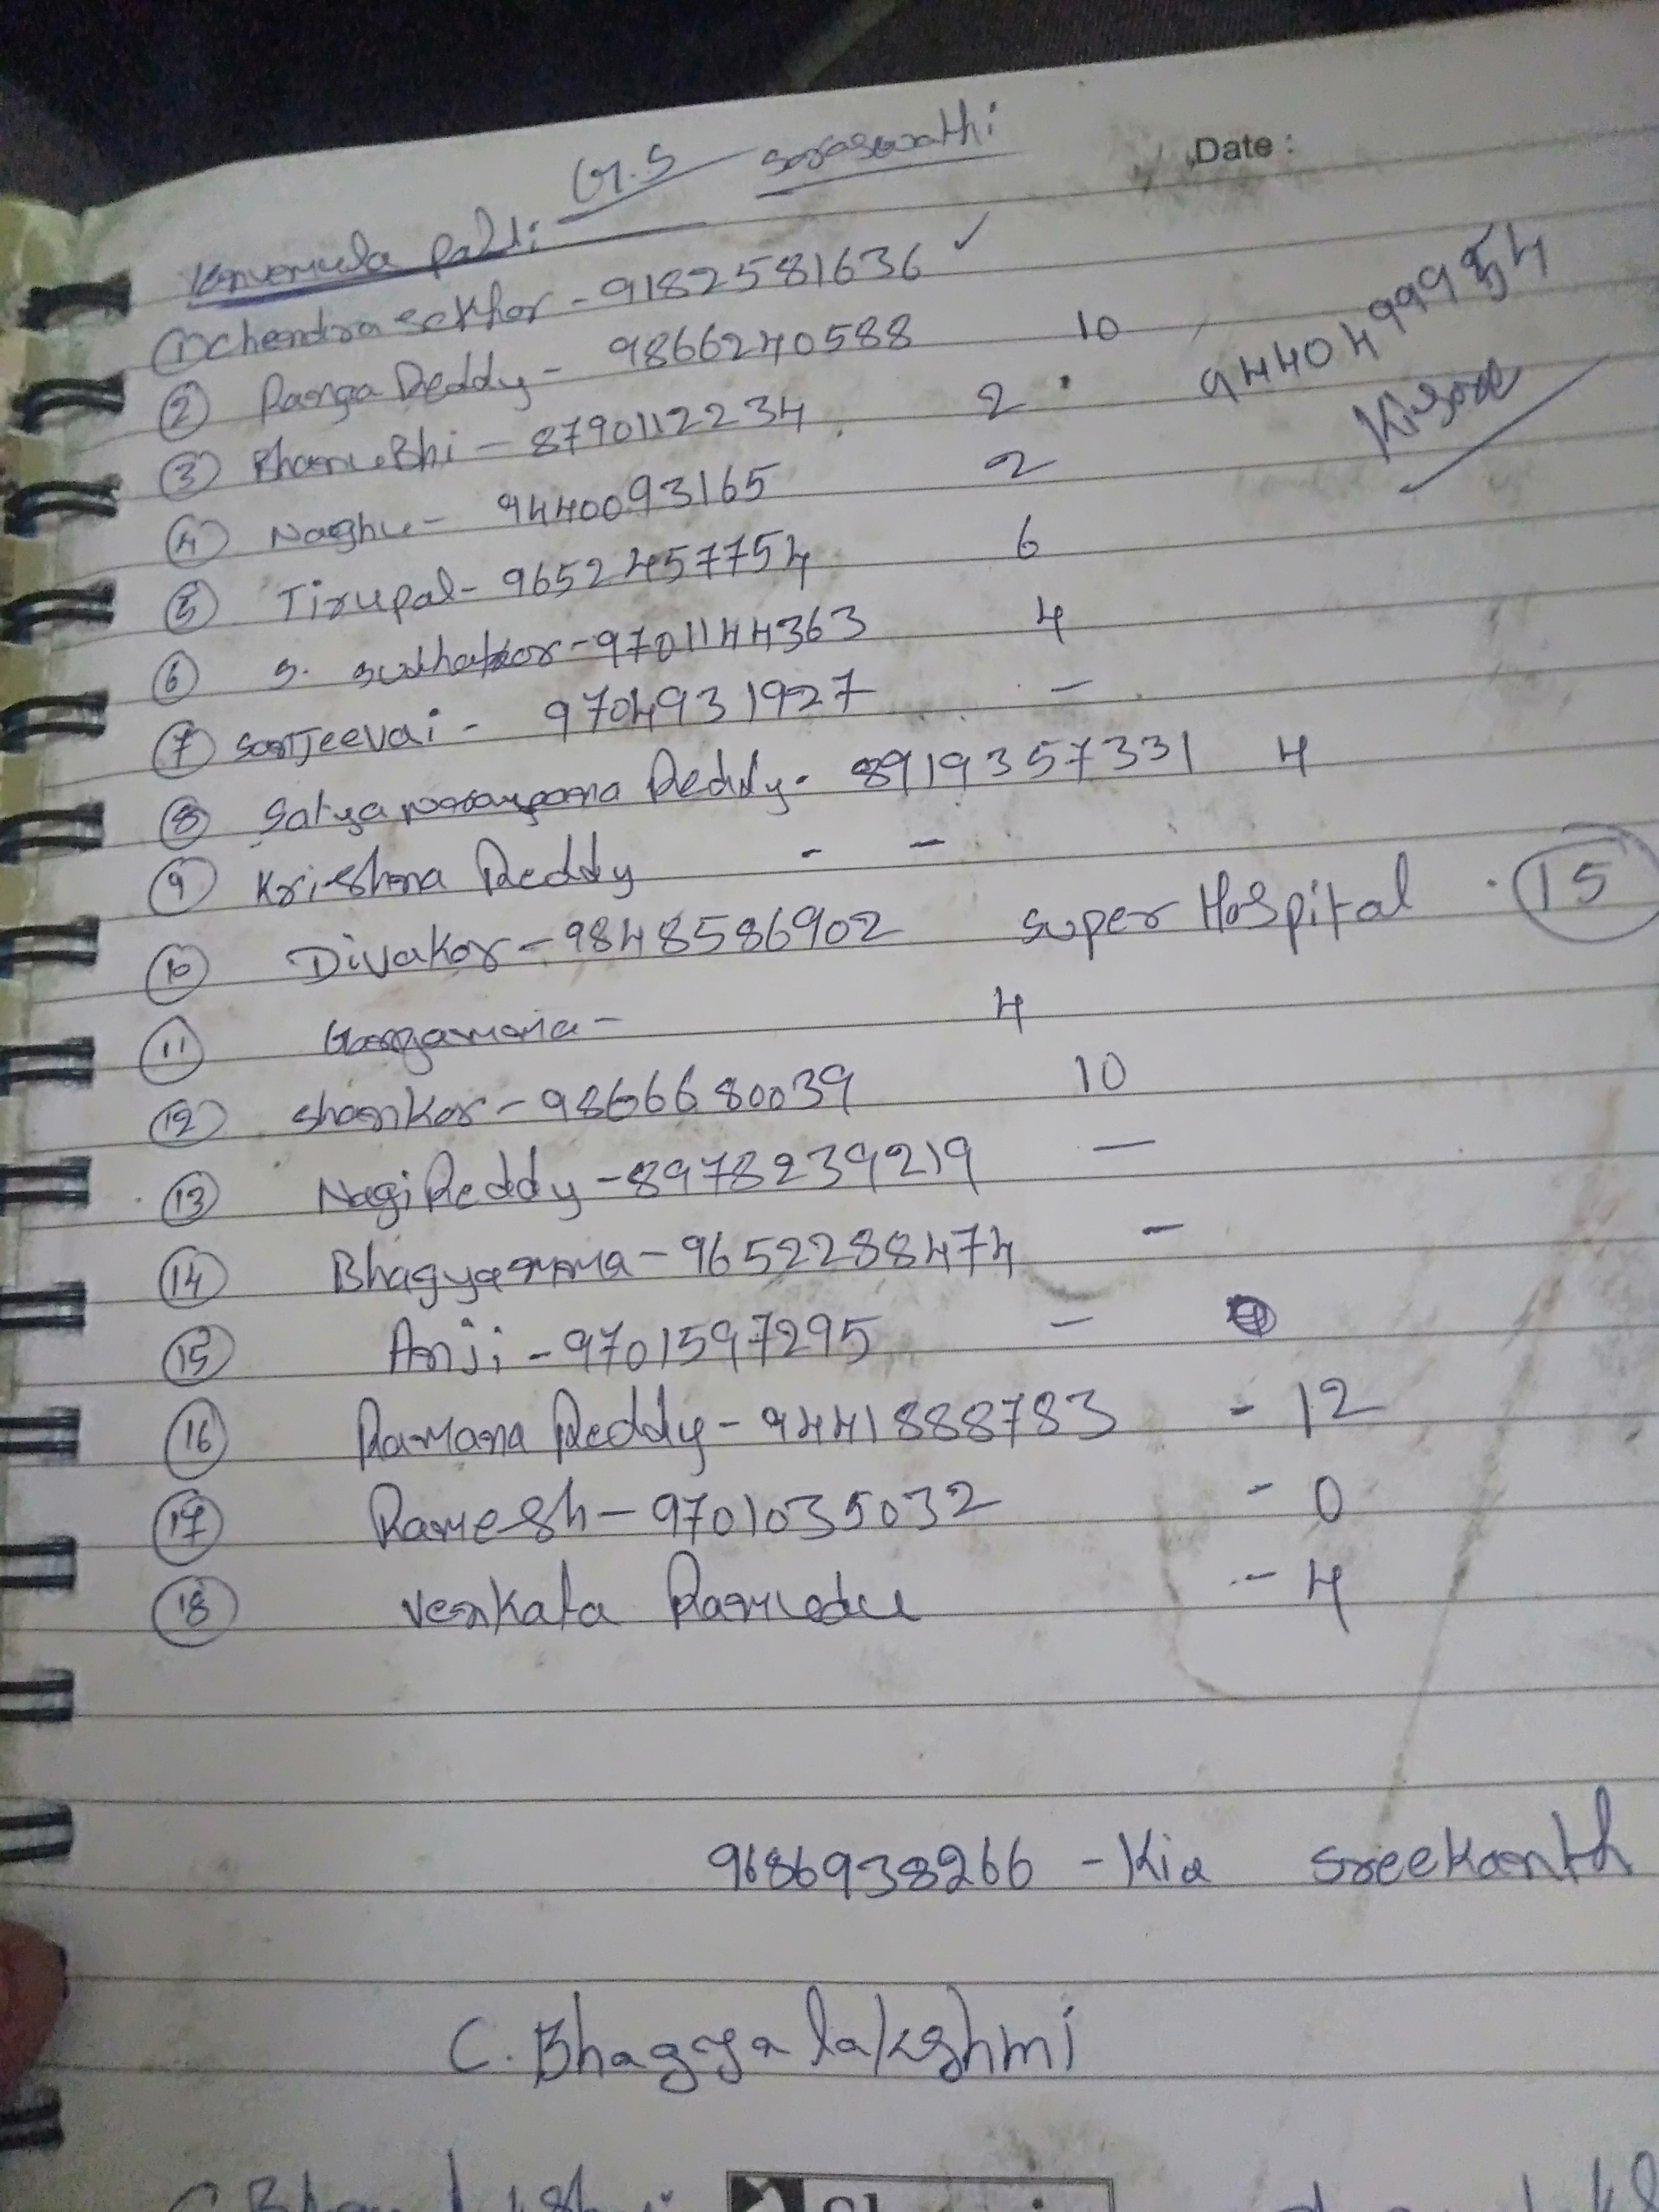 G.S Saraswathi
Date :
Konvemula palli
① Chendra sekhor - 9182581636 ✓
② Ranga Reddy - 9866240588 10
③ BhanuBhi - 8790112234 2
④ Naghu - 9440093165 2
⑤ Tirupal - 9652457754 6
⑥ S. Sudhakor - 9701144363 4
⑦ SanJeevai - 9704931927 -
⑧ Satya narayana Reddy - 8919357331 4
⑨ Krishna Reddy - -
⑩ Divakor - 9848586902 super Hospital . 15
⑪ Gangamma - 4
⑫ Shankor - 9866680039 10
⑬ NagiReddy - 8978239219 -
⑭ Bhagyamma - 9652288474 -
⑮ Anji - 9701597295 -
⑯ Ramana Reddy - 9441888783 - 12
⑰ Ramesh - 9701035032 - 0
⑱ Venkata Ramudu - 4
94404999
Kisore
9686938266 - Kia Sreekanth
C. Bhagya lakshmi